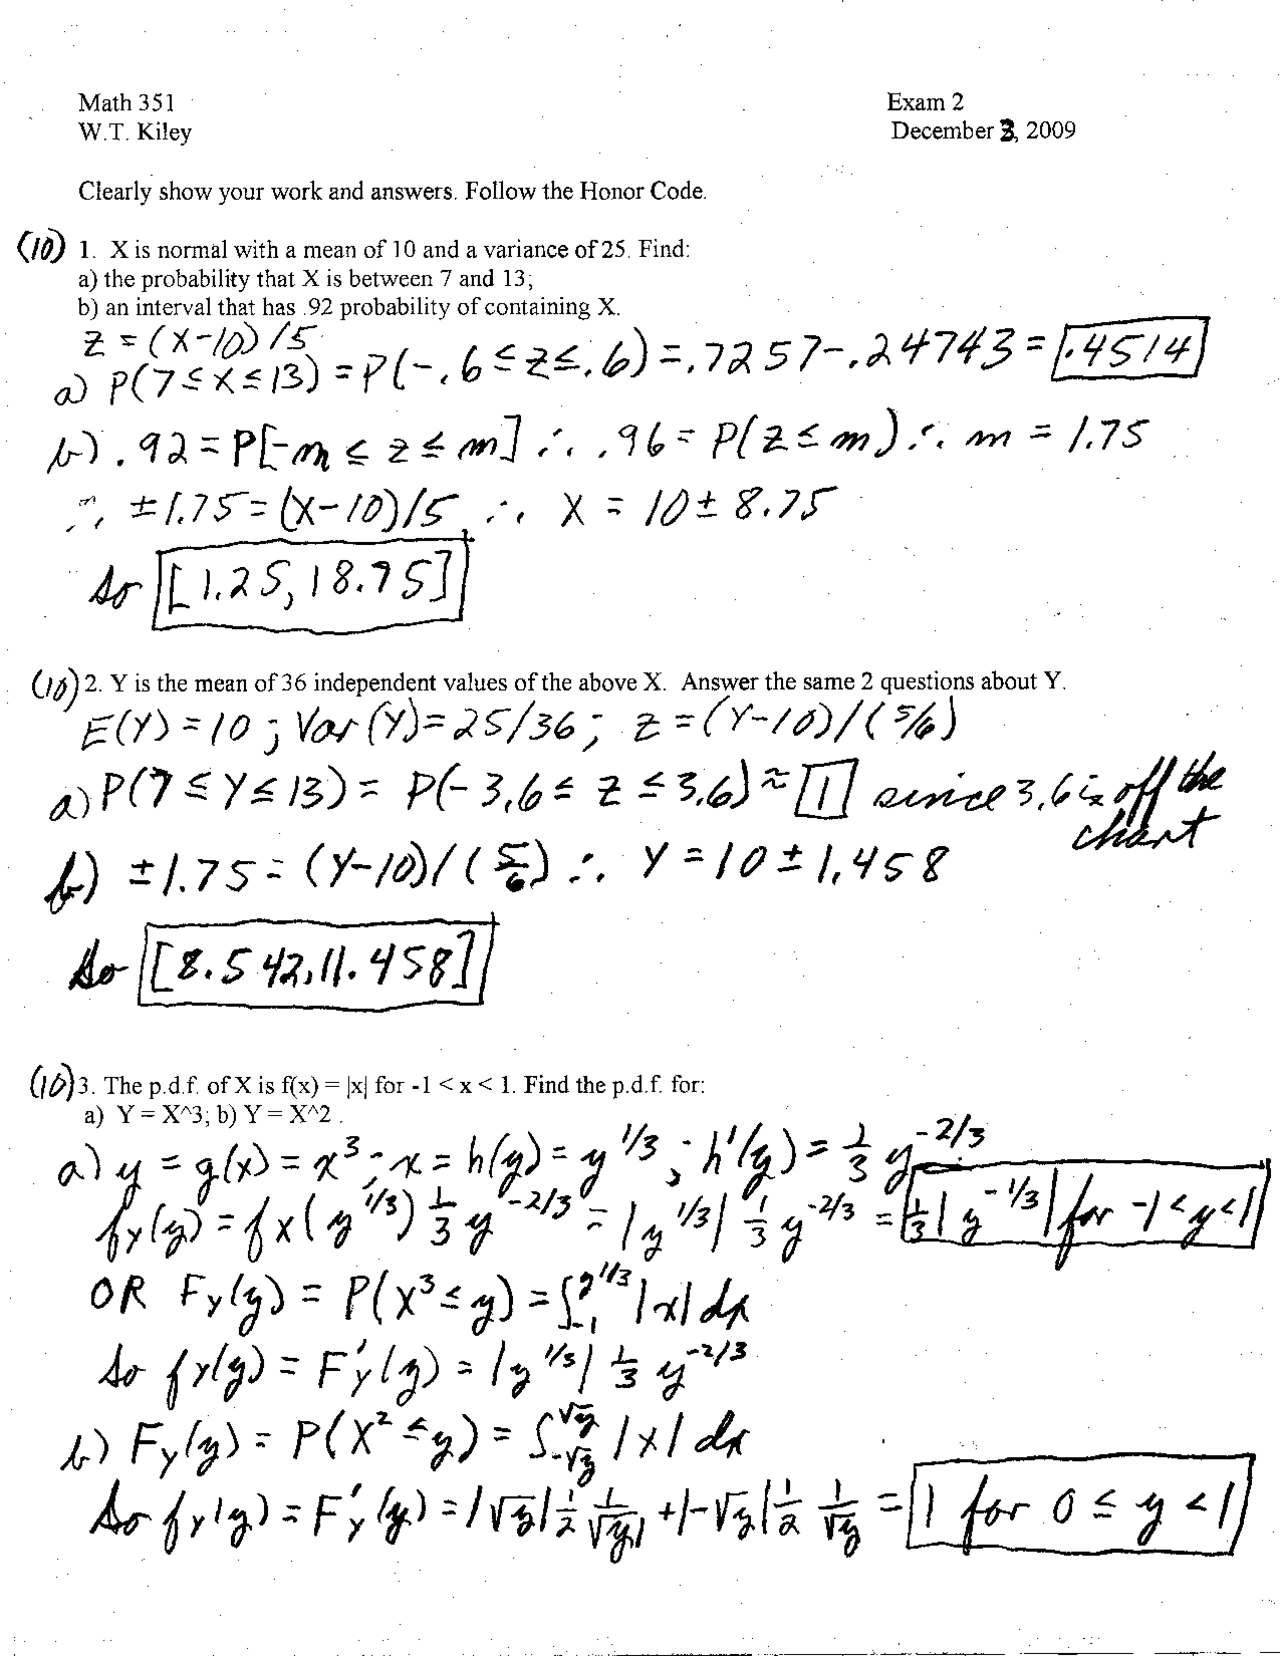 Math 351
Exam 2
W.T. Kiley
December 3, 2009
Clearly show your work and answers. Follow the Honor Code.
(10) 1. X is normal with a mean of 10 and a variance of 25. Find:
a) the probability that X is between 7 and 13;
b) an interval that has .92 probability of containing X.
z = (X-10)/5
a) P(7≤X≤13) = P(-.6≤z≤.6) = .7257-.24743 = .4514
b) .92 = P[-m ≤ z ≤ m] ∴ .96 = P(z≤m) ∴ m = 1.75
∴ ±1.75 = (X-10)/5 ∴ X = 10 ± 8.75
so [1.25, 18.75]
(10) 2. Y is the mean of 36 independent values of the above X. Answer the same 2 questions about Y.
E(Y) = 10 ; Var(Y) = 25/36 ; z = (Y-10)/(5/6)
a) P(7 ≤ Y ≤ 13) = P(-3.6 ≤ z ≤ 3.6) ≈ 1 since 3.6 is off the
chart
b) ±1.75 = (Y-10)/(5/6) ∴ Y = 10 ± 1.458
so [8.542, 11.458]
(10) 3. The p.d.f. of X is f(x) = |x| for -1 < x < 1. Find the p.d.f. for:
a) Y = X^3; b) Y = X^2 .
a) y = g(x) = x^3 ; x = h(y) = y^1/3 ; h'(y) = 1/3 y^-2/3
fY(y) = fX(y^1/3) 1/3 y^-2/3 = |y^1/3| 1/3 y^-2/3 = 1/3 |y^-1/3| for -1<y<1
OR FY(y) = P(X^3 ≤ y) = ∫_-1^y^1/3 |x| dx
so fY(y) = F'Y(y) = |y^1/3| 1/3 y^-2/3
b) FY(y) = P(X^2 ≤ y) = ∫_-√y^√y |x| dx
so fY(y) = F'Y(y) = |√y| 1/2 1/√y + |-√y| 1/2 1/√y = 1 for 0 ≤ y < 1